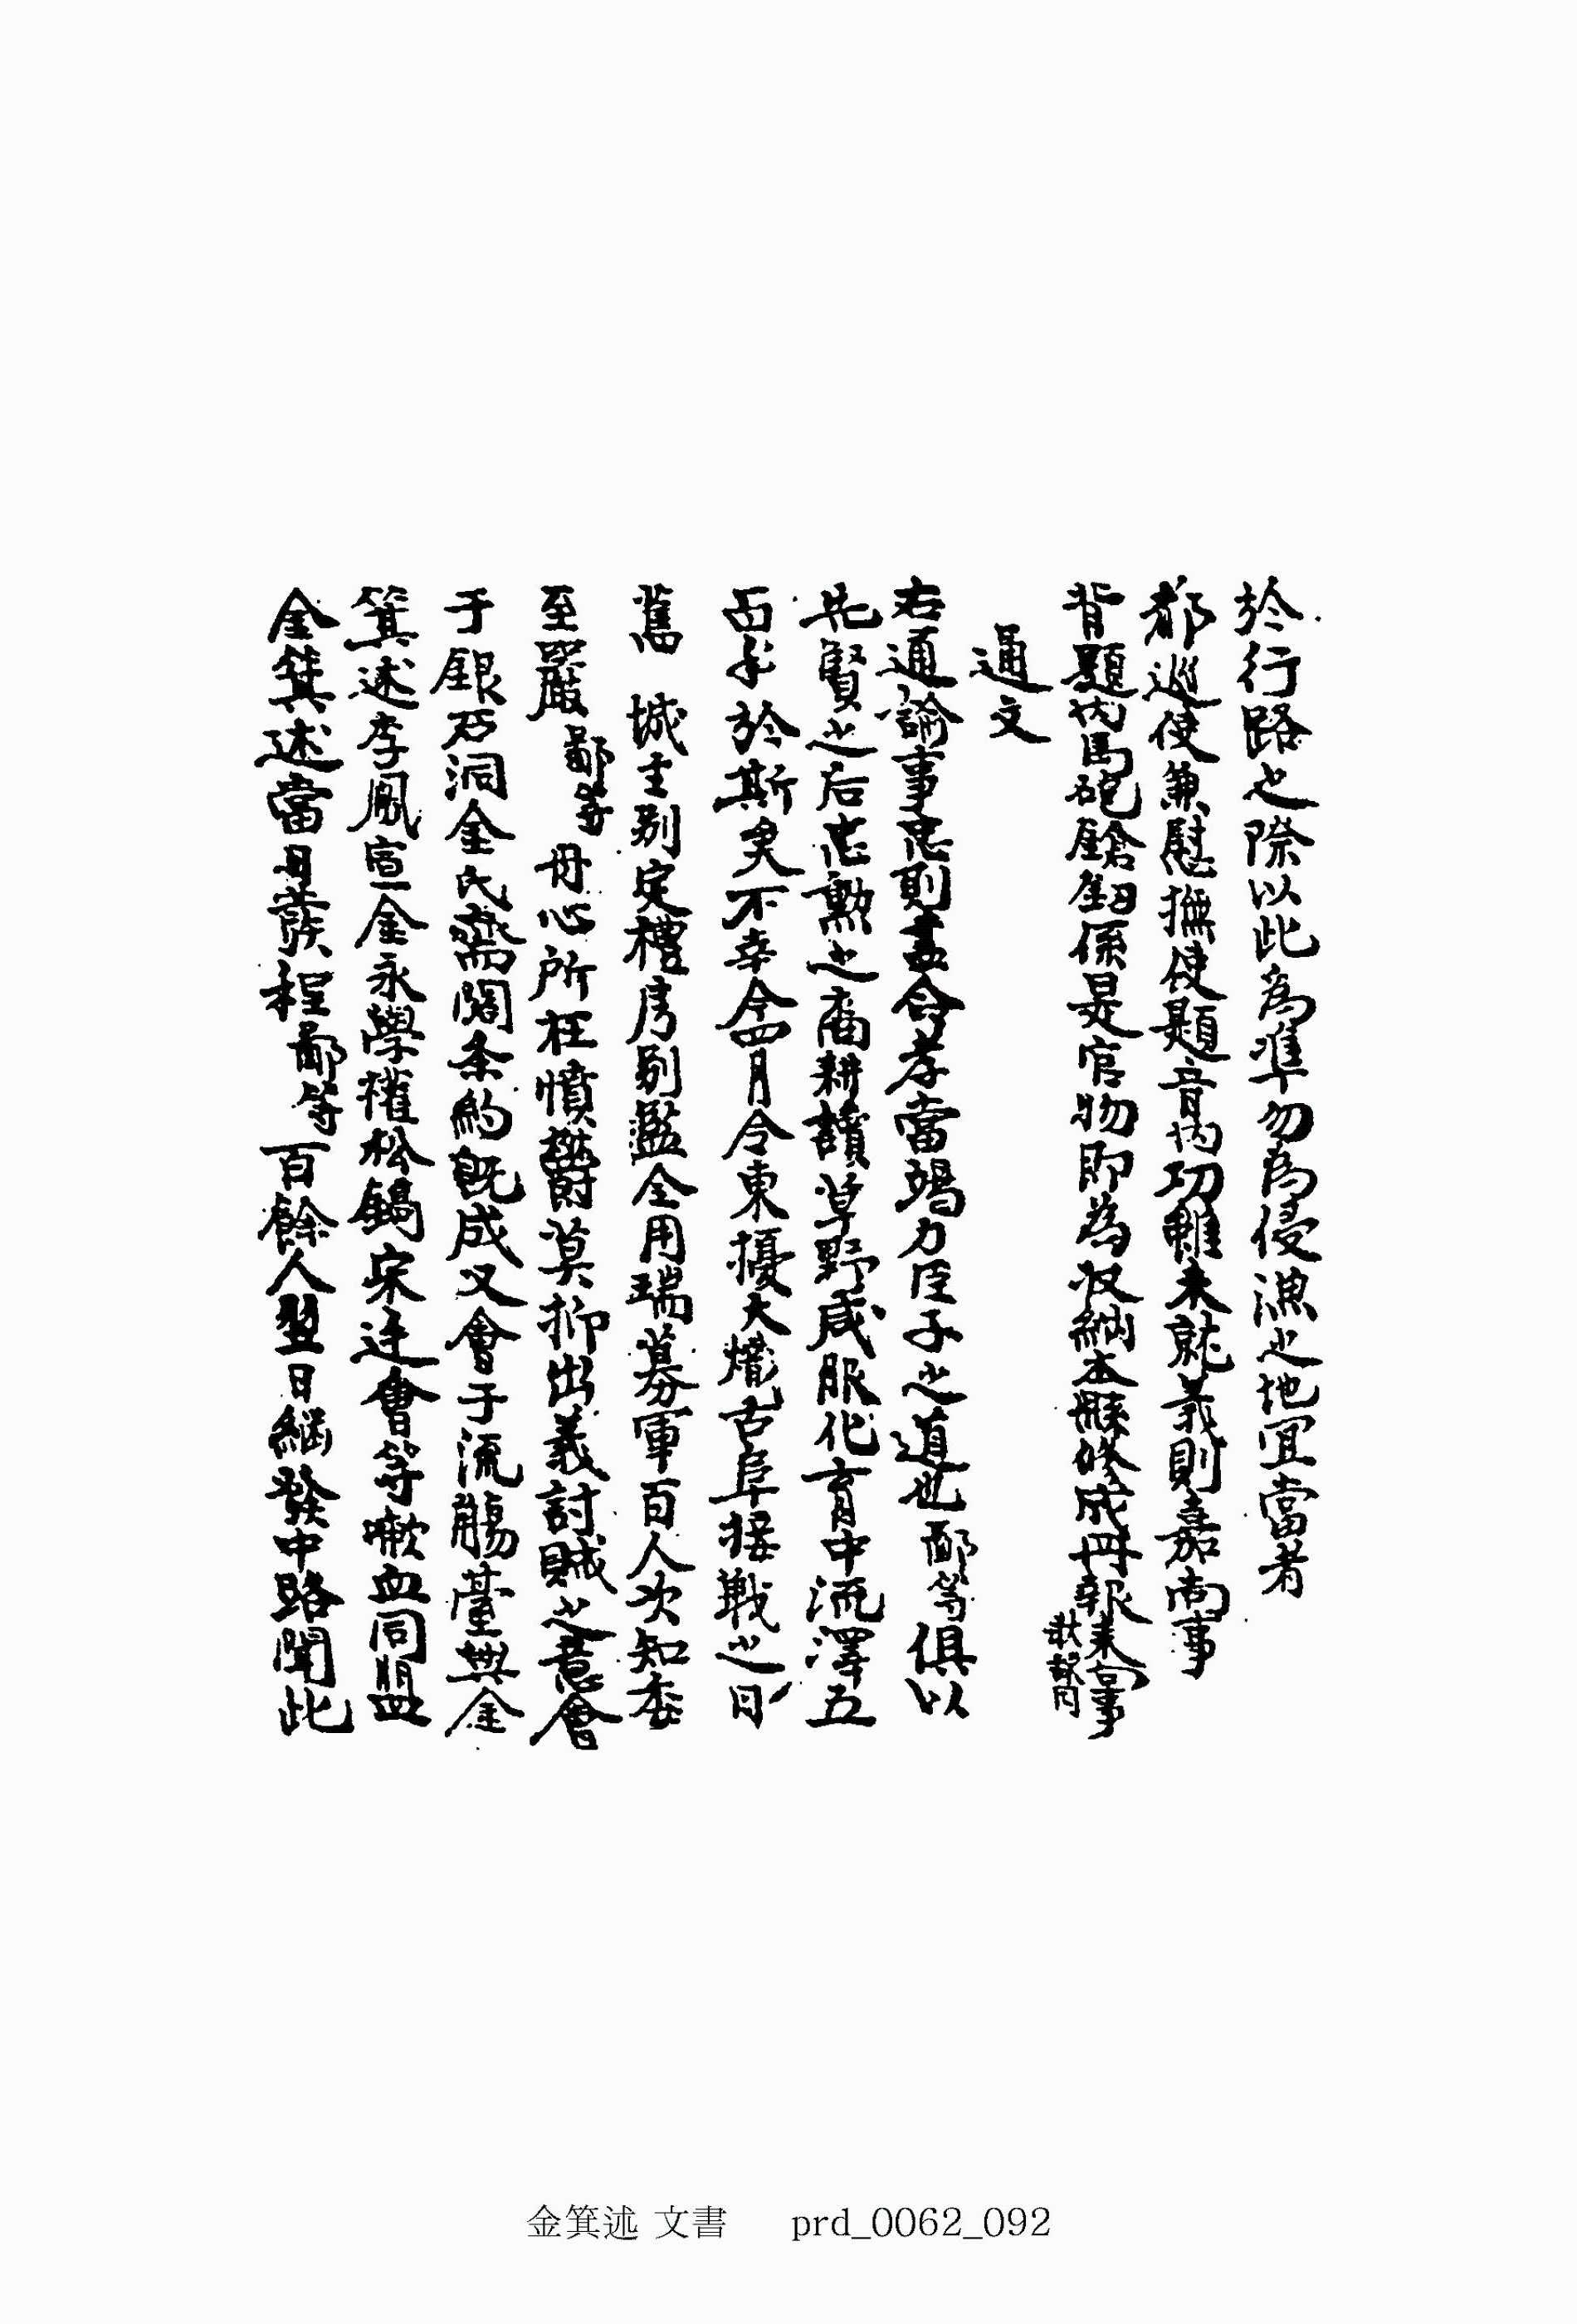 於行路之際以此為準勿為侵漁之地宜當者
都巡使兼慰撫使題音內功雖未就義則嘉尙事
背題內馬砲鎗釰係是官物卽為收納本縣修成冊報来向事
通文
右通諭事忠則盡命孝當竭力臣子之道也鄙等俱以
先賢之后忠勳之裔耕讀草野咸服化育中流澤五
百年於斯矣不幸今四月令東擾大熾古阜接戰之日
舊 城主別定禮房別監金用瑞募軍百人次知委
至嚴鄙等 丹心所在憤欝莫抑出義討賊之意會
于銀乃洞金氏齋閣条約旣成又會于流觴臺與金
箕述李鳳宣金永學權松鶴宋廷會等㗜血同盟
金箕述當日發程鄙等百餘人翌日繼發中路聞此
金箕述 文書 prd_0062_092